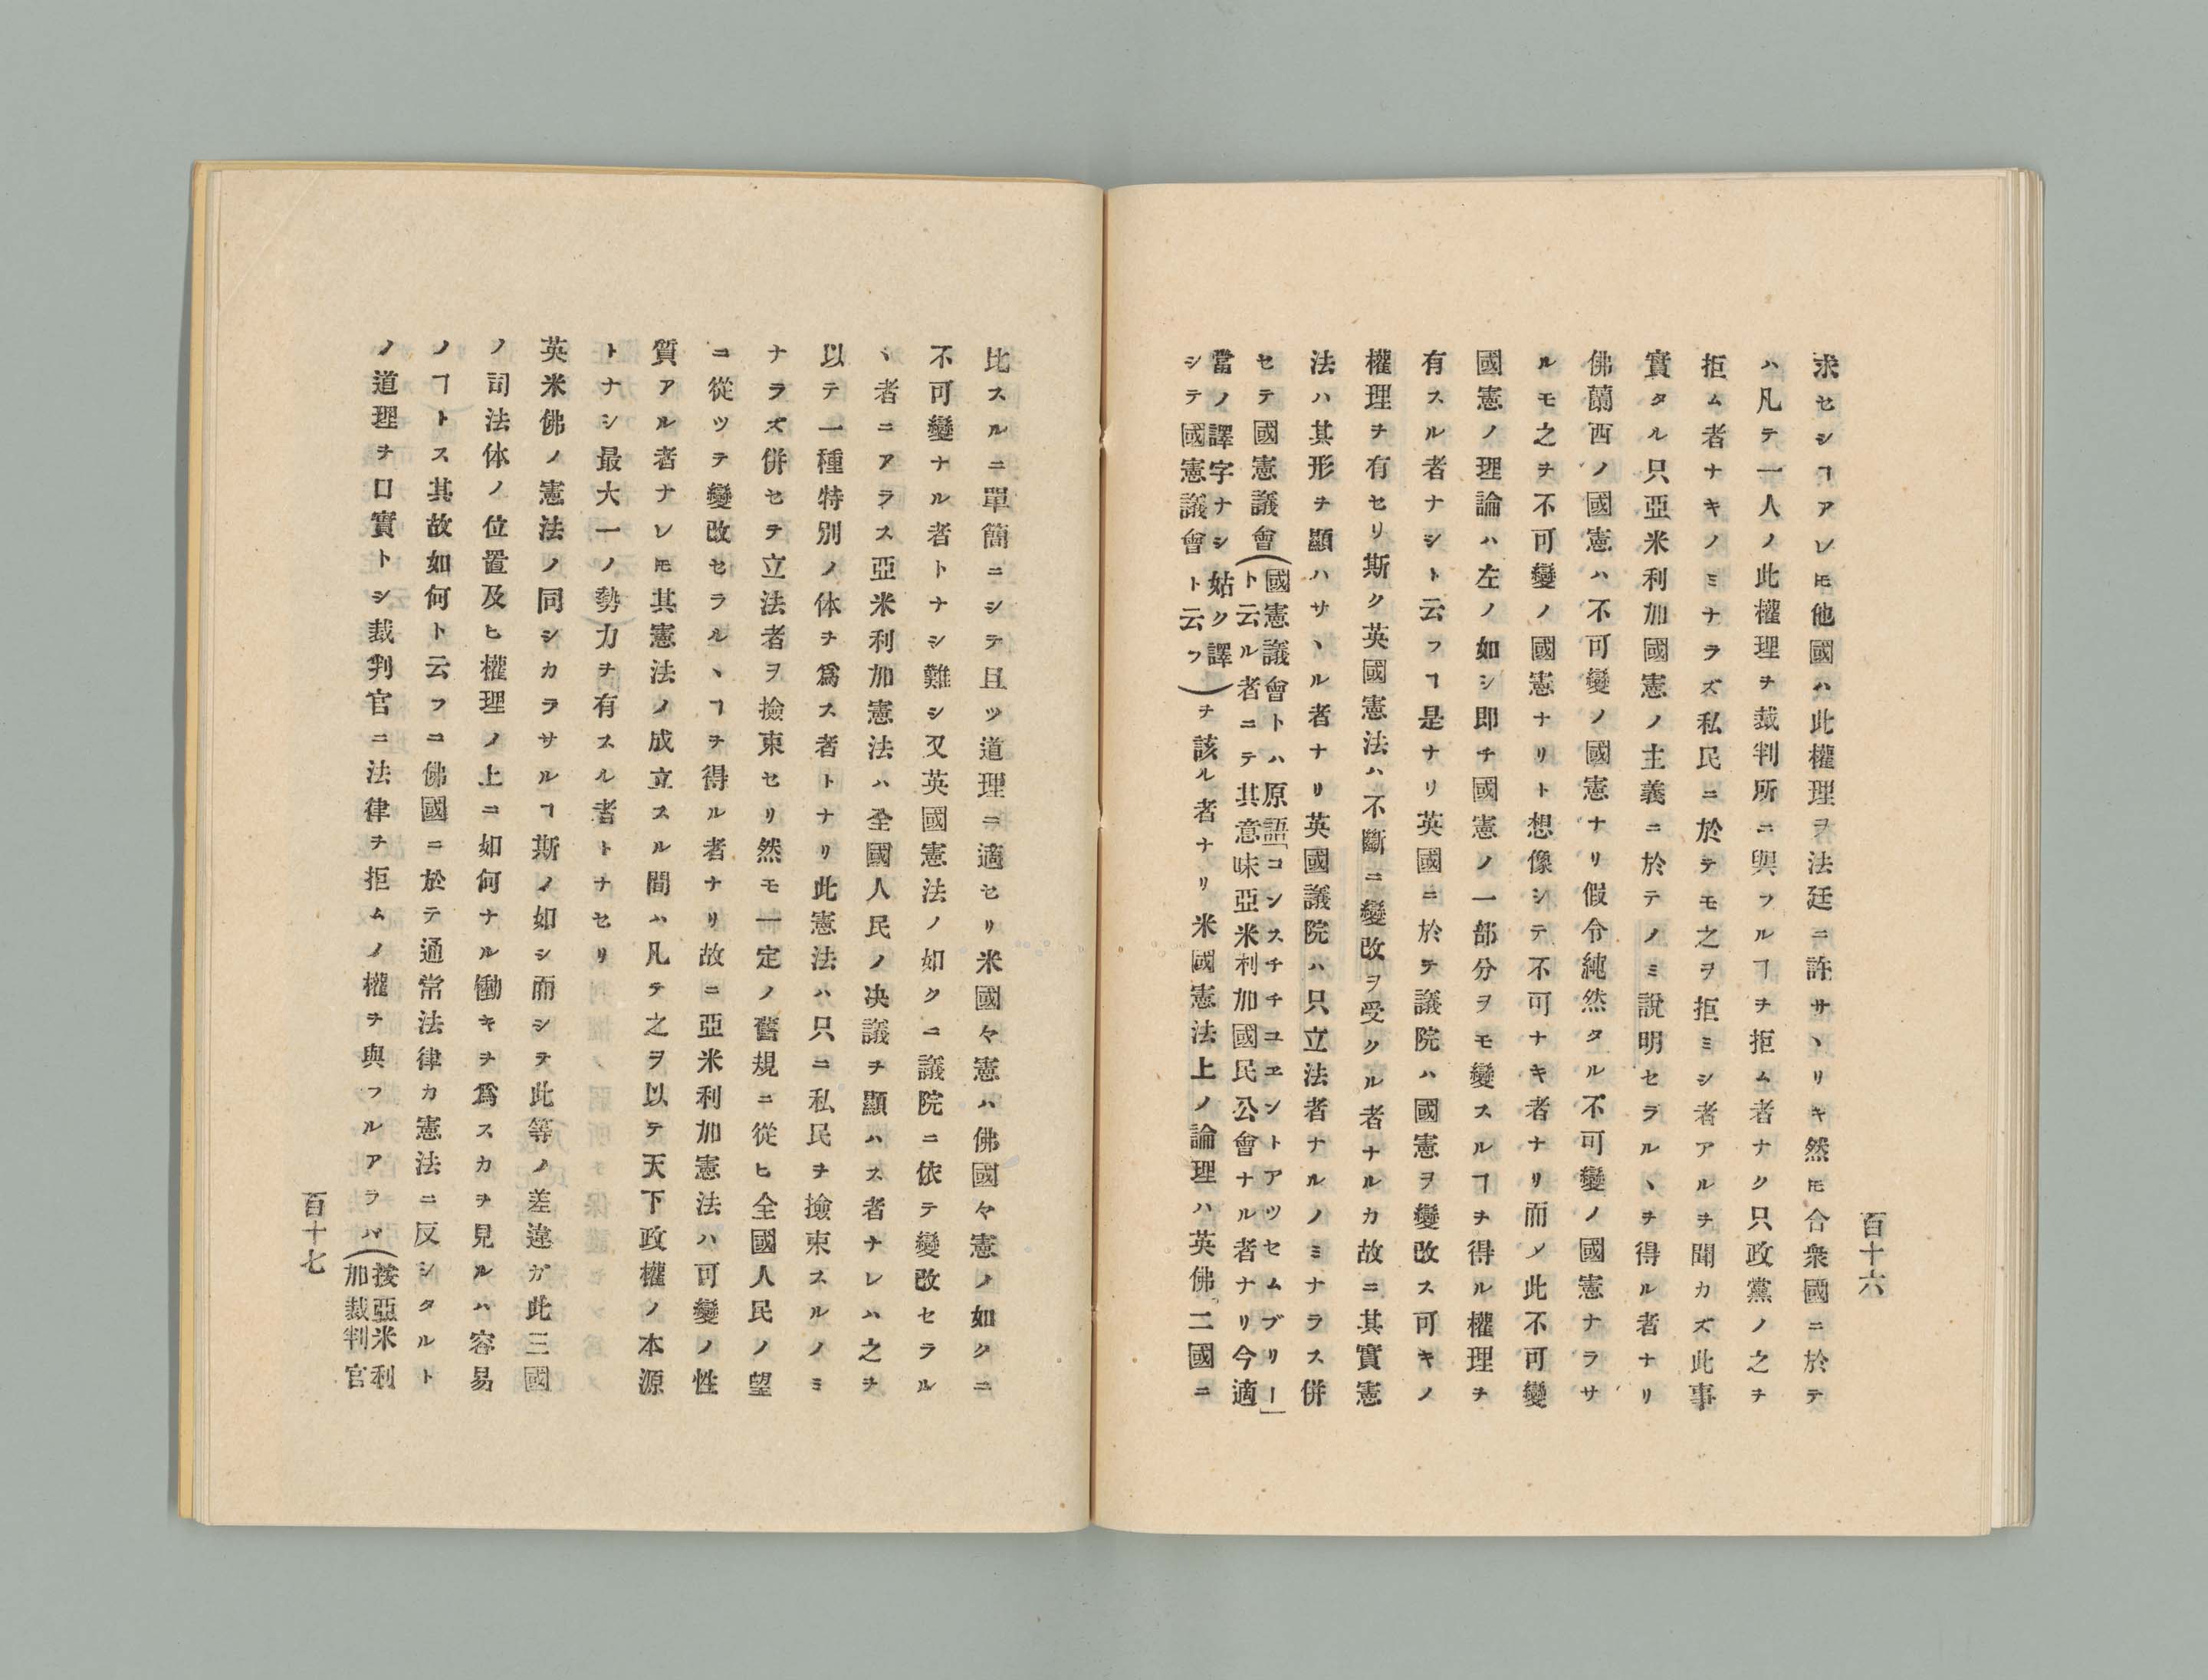 百十六
求セシヿアレ𪜈他國ハ此權理ヲ法廷ニ許サヽリキ然𪜈合衆國ニ於テ
ハ凡テ一人ノ此權理ヲ裁判所ニ與フルヿヲ拒ム者ナク只政黨ノ之ヲ
拒ム者ナキノミナラズ私民ニ於テモ之ヲ拒ミシ者アルヲ聞カズ此事
實タル只亞米利加國憲ノ主義ニ於テノミ說明セラルヽヲ得ル者ナリ
佛蘭西ノ國憲ハ不可變ノ國憲ナリ假令純然タル不可變ノ國憲ナラサ
ルモ之ヲ不可變ノ國憲ナリト想像シテ不可ナキ者ナリ而ソ此不可變
國憲ノ理論ハ左ノ如シ即チ國憲ノ一部分ヲモ變スルヿヲ得ル權理ヲ
有スル者ナシト云フヿ是ナリ英國ニ於テ議院ハ國憲ヲ變改ス可キノ
權理ヲ有セリ斯ク英國憲法ハ不斷ニ變改ヲ受クル者ナルカ故ニ其實憲
法ハ其形ヲ顯ハサヽル者ナリ英國議院ハ只立法者ナルノミナラス併
セテ國憲議會(國憲議會トハ原語「コンスチチユヱントアツセムブリー」
ト云ル者ニテ其意味亞米利加國民公會ナル者ナリ今適
當ノ譯字ナシ姑ク譯
シテ國憲議會ト云フ)ヲ該ル者ナリ米國憲法上ノ論理ハ英佛二國ニ
比スルニ單簡ニシテ且ツ道理ニ適セリ米國々憲ハ佛國々憲ノ如クニ
不可變ナル者トナシ難シ又英國憲法ノ如クニ議院ニ依テ變改セラル
ヽ者ニアラス亞米利加憲法ハ全國人民ノ決議ヲ顯ハス者ナレハ之ヲ
以テ一種特別ノ体ヲ爲ス者トナリ此憲法ハ只ニ私民ヲ撿束スルノミ
ナラズ併セテ立法者ヲ撿束セリ然モ一定ノ舊規ニ從ヒ全國人民ノ望
ニ從ツテ變改セラルヽヿヲ得ル者ナリ故ニ亞米利加憲法ハ可變ノ性
質アル者ナレ𪜈其憲法ノ成立スル間ハ凡テ之ヲ以テ天下政權ノ本源
トナシ最大一ノ勢力ヲ有スル者トナセリ
英米佛ノ憲法ノ同シカラサルヿ斯ノ如シ而シテ此等ノ差違ガ此三國
ノ司法体ノ位置及ヒ權理ノ上ニ如何ナル働キヲ爲スカヲ見ルハ容易
ノヿトス其故如何ト云フニ佛國ニ於テ通常法律カ憲法ニ反シタルト
ノ道理ヲ口實トシ裁判官ニ法律ヲ拒ムノ權ヲ與フルアラバ(按亞米利
加裁判官
百十七